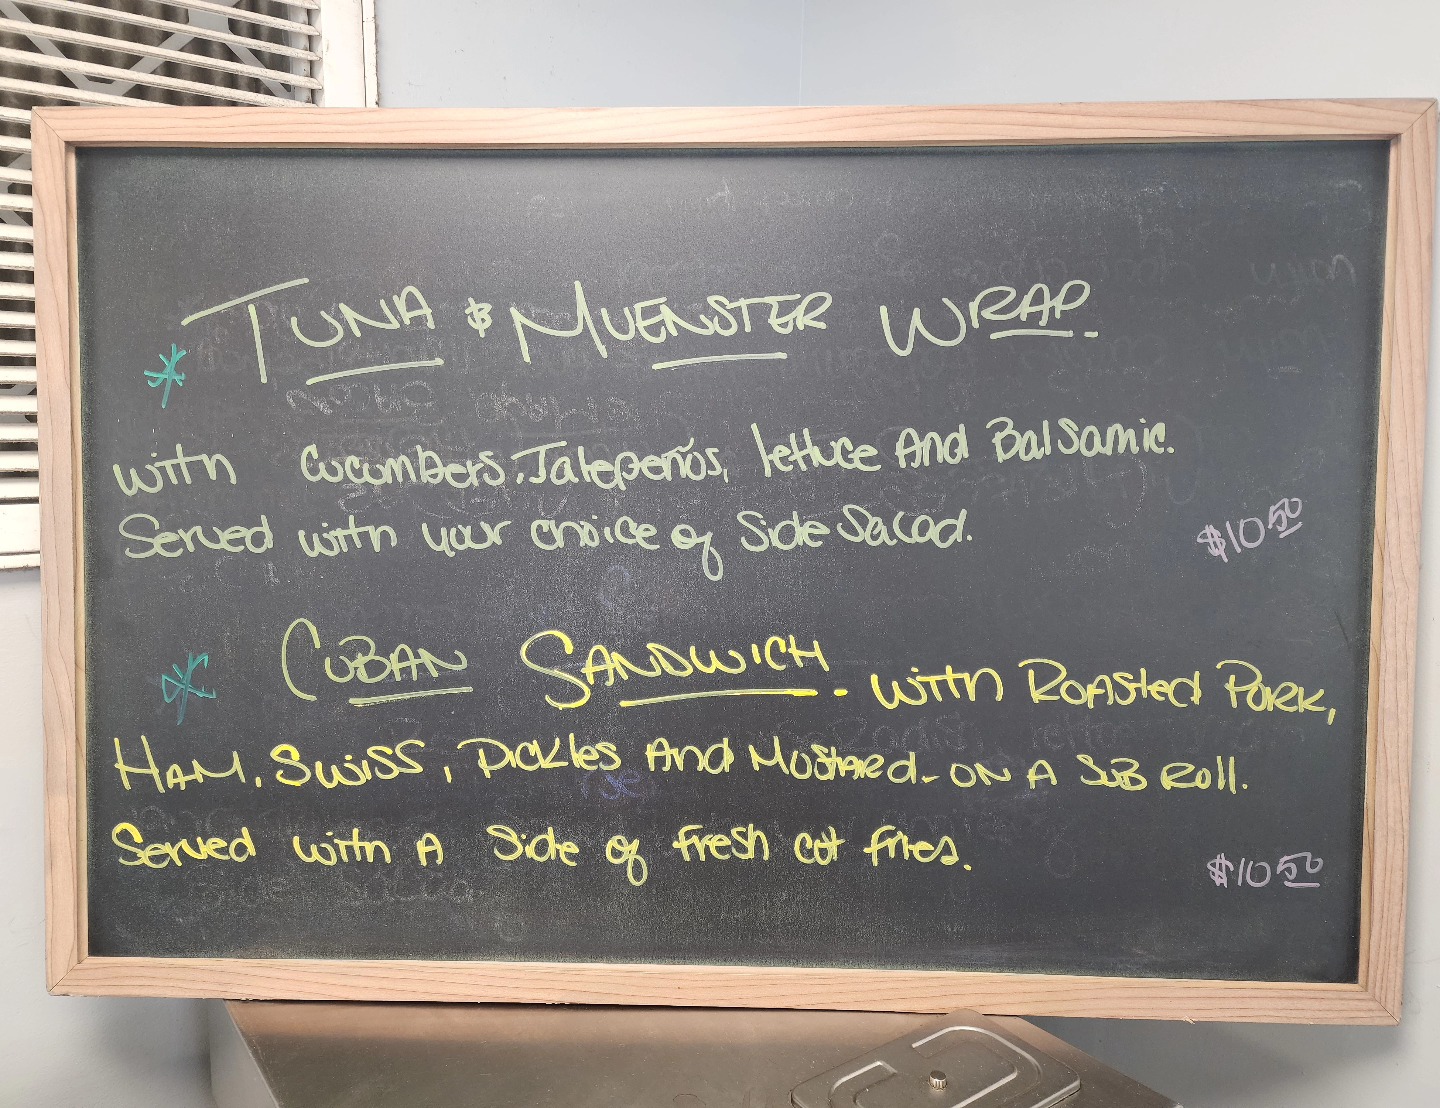 * TUNA & MUENSTER WRAP.
with cucumbers, Jalepeños, lettuce And Balsamic.
Served with your choice of Side Salad.
$10.50
* CUBAN SANDWICH. with Roasted Pork,
HAM, SWISS, Pickles And Mustard - ON A SUB Roll.
Served with A Side of fresh cut fries.
$10.50